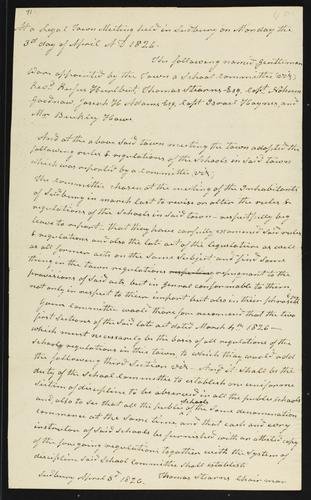 At a Legal Town Meeting held in Sudbury on Monday the
3rd day of April A.D. 1826.
The following named Gentlemen
Ware appointed by the Town a School Committee viz;
Revd Rufus Hurlbut, Thomas Stearns Esq, Capt Nahum
Goodnow Joseph H. Adams Esq. Capt Israel Haynes and
Mr Buckley Howe
And at the above said town meeting the town adopted the
following rules & regulations of the Schools in said town
which was reported by a Committee viz;
The Committee chosen at the meeting of the Inhabitants
of Sudbury in march last to revise or alter the rules &
regulations of the Schools in said town—respectfully beg
leave to report—that they have carfully examined said rules
& regulations and also the late act of the legislature as well
as all former acts on the same subject and find some
things in the town regulations repugnant to the
provisions of said acts but in general conformable to them
not only in respect to their import but also in their
Your Committee would therefore recommend that the two
first Sections of the said late act dated March 4th 1826—
which must necessarily be the bases of all regulations of the
Schools regulations in this town, to which they would add
the following third Section viz. And it shall be the
duty of the School Committee to establish one uniform
System of discipline to be observed in all the public schools
and also to see that all the public Schools of the same denomination
commence at the same time and that each and every
instructor of said Schools be furnished with an attested copy
of the foregoing regulations together with the System of
discipline said School Committee shall establish
Sudbury April 3d 1826. Thomas Stearns Chairman